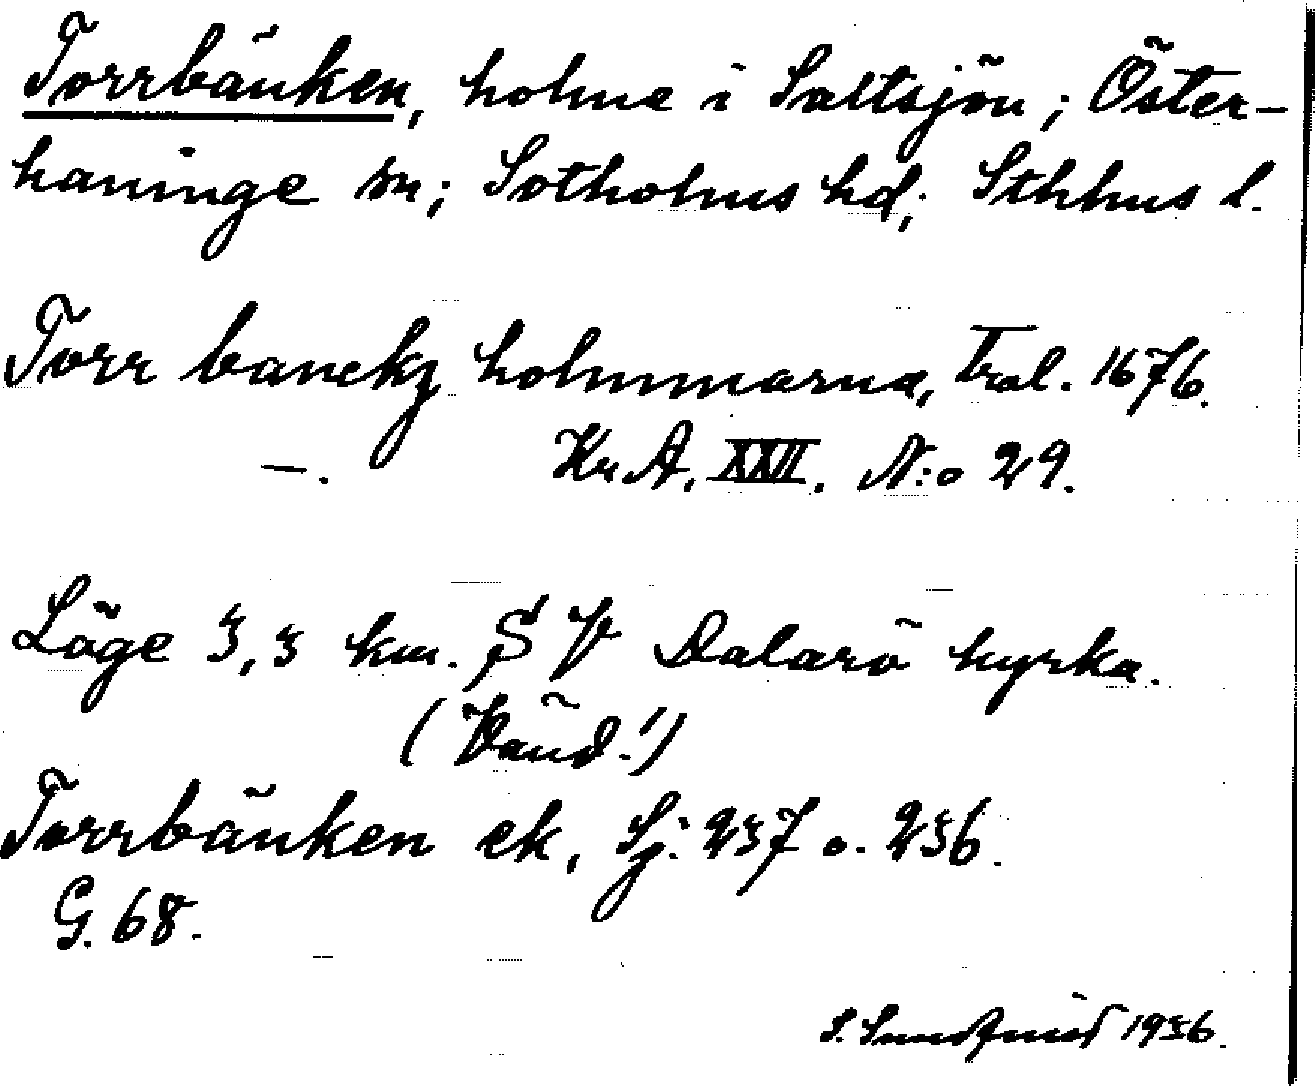 Torrbänken, holme i Saltsjön; Öster-
haninge sn; Sotholms hd; Sthlms l.
Torr banckz holmmarna, Tral. 1676.
—. Kr.A. XXVII. N:o 29.
Läge 3,3 km. SV Dalarö kyrka.
(Vänd!)
Torrbänken ek, Sj: 237 o. 236.
G. 68.
S. Sundquist 1936.